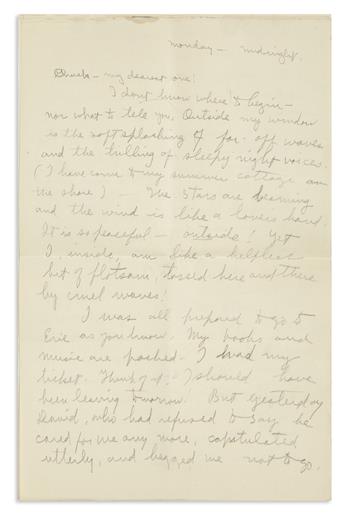 Monday — midnight.
Chuck — my dearest one!
I don't know where to begin —
nor what to tell you. Outside my window
is the soft splashing of far-off waves
and the trilling of sleepy night voices.
(I have come to my summer cottage on
the shore) — The stars are beaming
and the wind is like a lovers hand.
It is so peaceful — outside! Yet
I, inside, am like a helpless
bit of flotsam, tossed here and there
by cruel waves!
I was all prepared to go to
Erie as you know. My books and
music are packed — I had my
ticket. Think of it! I should have
been leaving tomorrow. But yesterday
David, who had refused to say he
cared for me any more, capitulated
utterly, and begged me not to go.